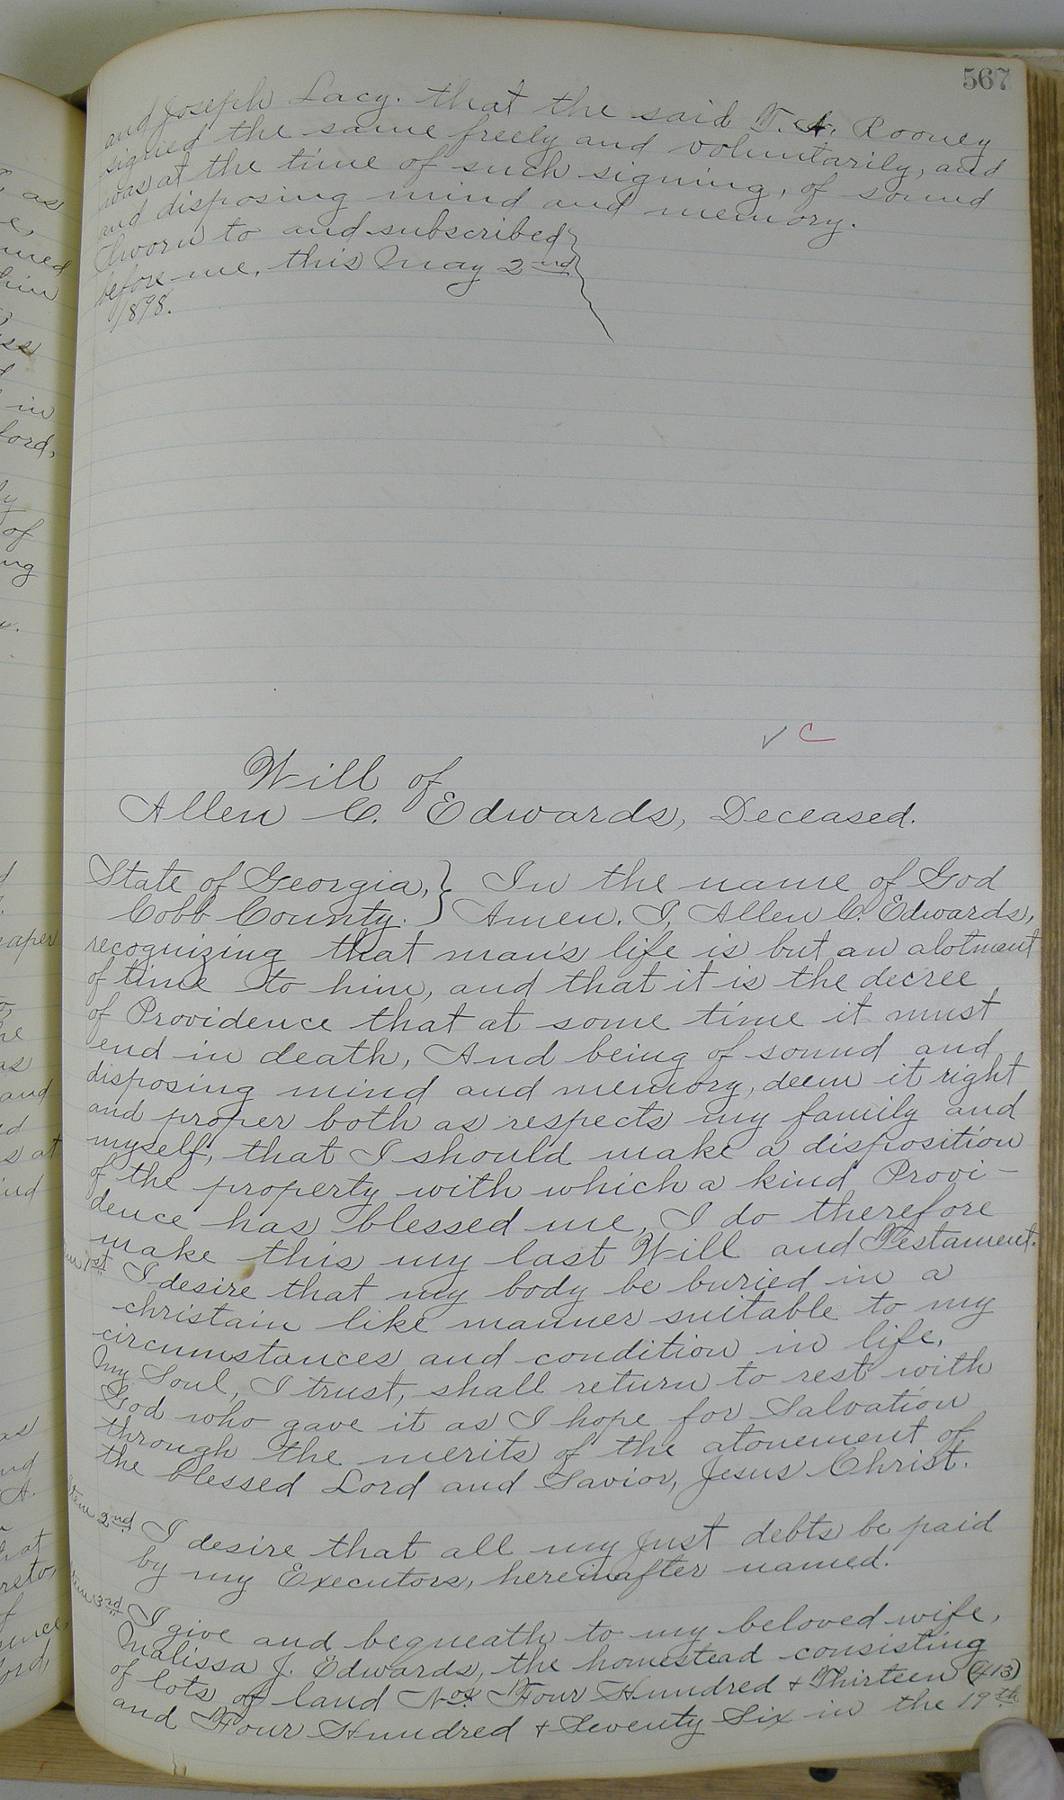 567
and Joseph Lacy. that the said T. A. Rooney
signed the same freely and voluntarily, and
was at the time of such signing, of sound
and disposing mind and memory.
Sworn to and subscribed
before me, this May 2nd
1898.
Will of
Allen C. Edwards, Deceased.
State of Georgia, } In the name of God
Cobb County. } Amen. I, Allen C. Edwards,
recognizing that man's life is but an alotment
of time to him, and that it is the decree
of Providence that at some time it must
end in death, And being of sound and
disposing mind and memory, deem it right
and proper both as respects my family and
myself, that I should make a disposition
of the property with which a kind Provi-
dence has blessed me, I do therefore
make this my last Will and Testament.
Item 1st I desire that my body be buried in a
christain like manner suitable to my
circumstances and condition in life.
My Soul, I trust, shall return to rest with
God who gave it as I hope for Salvation
through the merits of the atonement of
the blessed Lord and Savior, Jesus Christ.
Item 2nd I desire that all my just debts be paid
by my Executors, hereinafter named.
Item 3rd I give and bequeath to my beloved wife,
Malissa J. Edwards, the homestead consisting
of lots of land Nos Four Hundred & Thirteen (413)
and Four Hundred & Seventy Six in the 19th